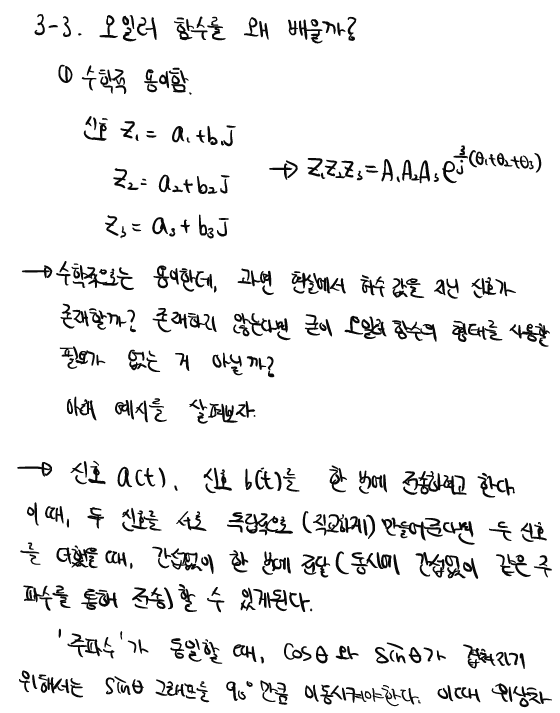 3-3. 오일러 함수를 왜 배울까?
① 수학적 용이함.
신호 Z₁ = a₁+b₁j
Z₂ = a₂+b₂j → Z₁Z₂Z₃ = A₁A₂A₃e^j(θ₁+θ₂+θ₃)
Z₃ = a₃+b₃j
→ 수학적으로는 용이한데, 과연 현실에서 허수 값을 지닌 신호가
존재할까? 존재하지 않는다면 굳이 오일러 함수의 형태를 사용할
필요가 없는 거 아닐까?
아래 예시를 살펴보자.
→ 신호 a(t), 신호 b(t)를 한 번에 전송하려고 한다.
이 때, 두 신호를 서로 독립적으로 (직교하게) 만들어준다면 두 신호
를 더했을 때, 간섭없이 한 번에 전달 (동시에 간섭없이 같은 주
파수를 통해 전송) 할 수 있게된다.
'주파수'가 동일할 때, cosθ 와 sinθ가 겹쳐지기
위해서는 sinθ 그래프를 90°만큼 이동시켜야한다. 이때 위상차